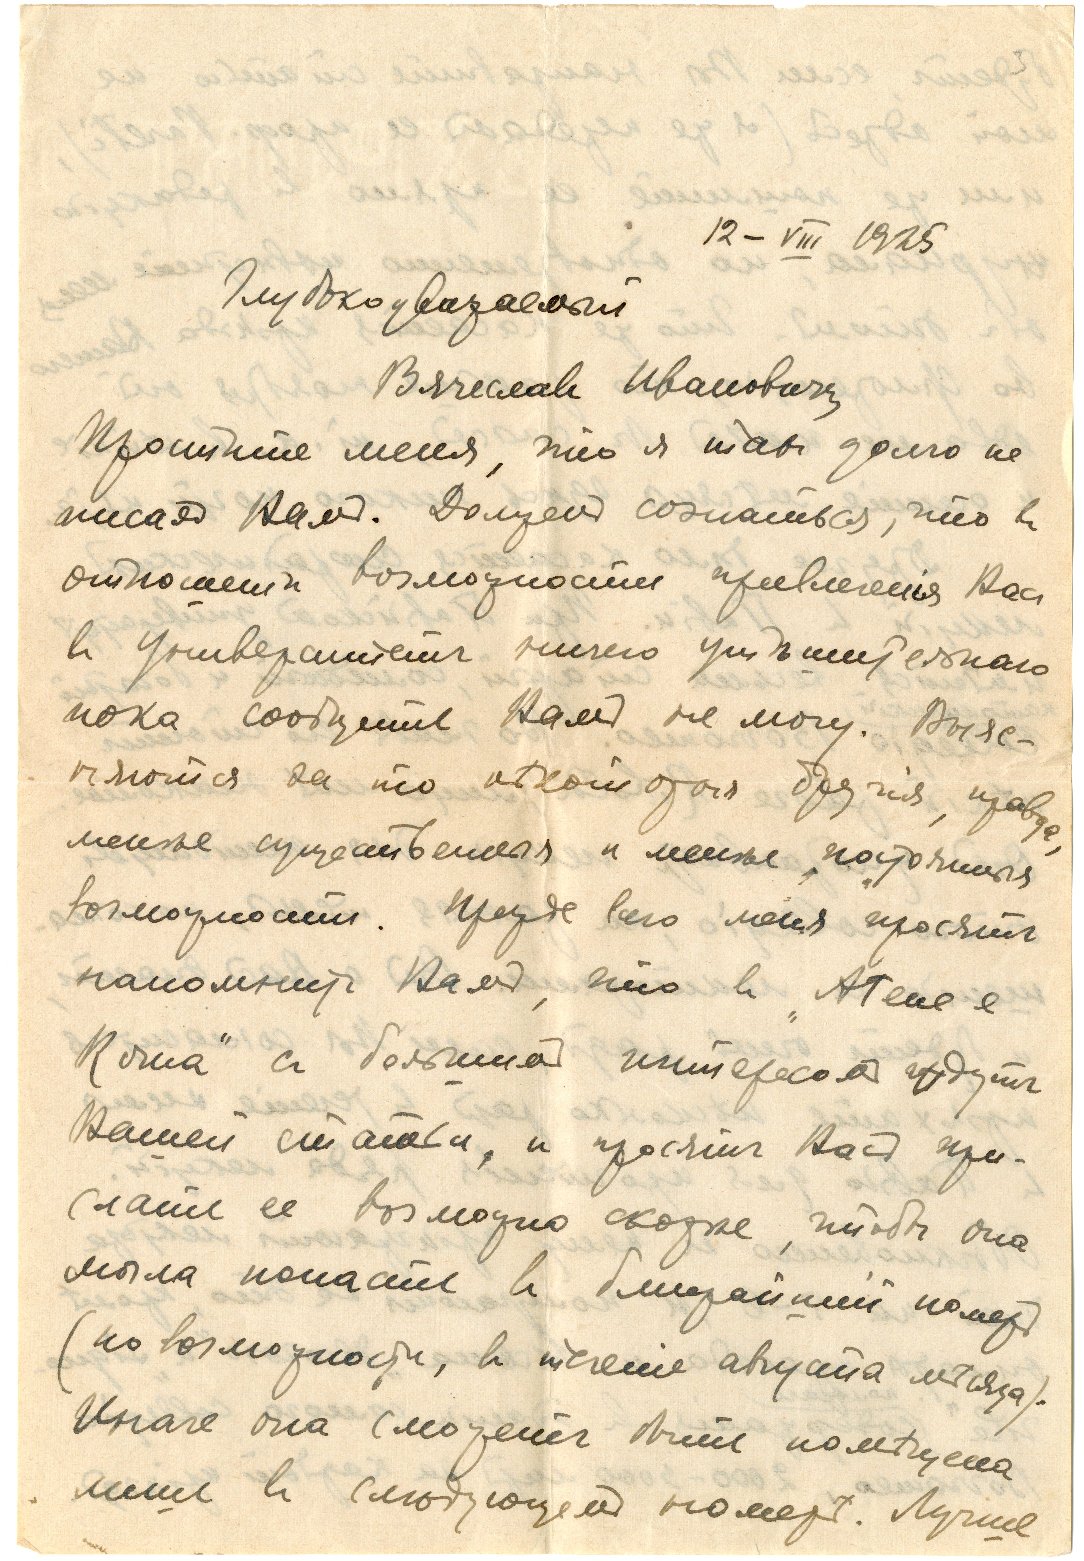 12 – VIII 1925
Глубокоуважаемый
Вячеславъ Ивановичъ,
Простите меня, что я такъ долго не
писалъ Вамъ. Долженъ сознаться, что въ
отношении возможности привлеченія Васъ
въ Университетъ ничего утѣшительнаго
пока сообщить Вамъ не могу. Выяс-
няются за то нѣкоторыя другія, правда,
менѣе существенныя и менѣе „постоянныя“
возможности. Прежде всего меня просятъ
напомнить Вамъ, что въ „Атене е
Рома“ съ большимъ интересомъ ждутъ
Вашей статьи, и просятъ Васъ при-
слать ее возможно скорѣе, чтобъ она
могла попасть въ ближайший номеръ
(по возможности, въ теченіе августа мѣсяца).
Иначе она сможетъ быть помѣщена
лишь въ слѣдующемъ номерѣ. Лучше